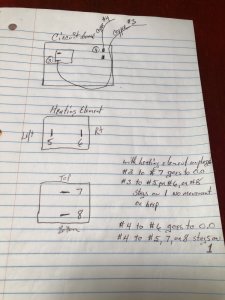 #4
#3
Circuit board
copper
Heating Element
Left
Rt
5
6
with heating element unplugged
#2 to #7, goes to 0.0
#3 to #5, or #6, or #8
Stays on 1 No movement
or beep
Top
7
8
Bottom
#4 to #6, goes to 0.0
#4 to #5, 7, or 8 stays on
1